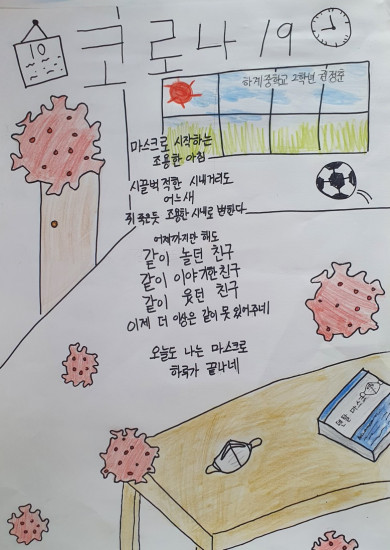 10
코로나 19
하계중학교 2학년
마스크로 시작하는
조용한 아침
시끌벅적한 시내거리도
어느새
쥐 죽은듯 조용한 시내로 변한다
어제까지만 해도
같이 놀던 친구
같이 이야기한 친구
같이 웃던 친구
이제 더 이상은 같이 못 있어주네
오늘도 나는 마스크로
하루가 끝나네
마스크